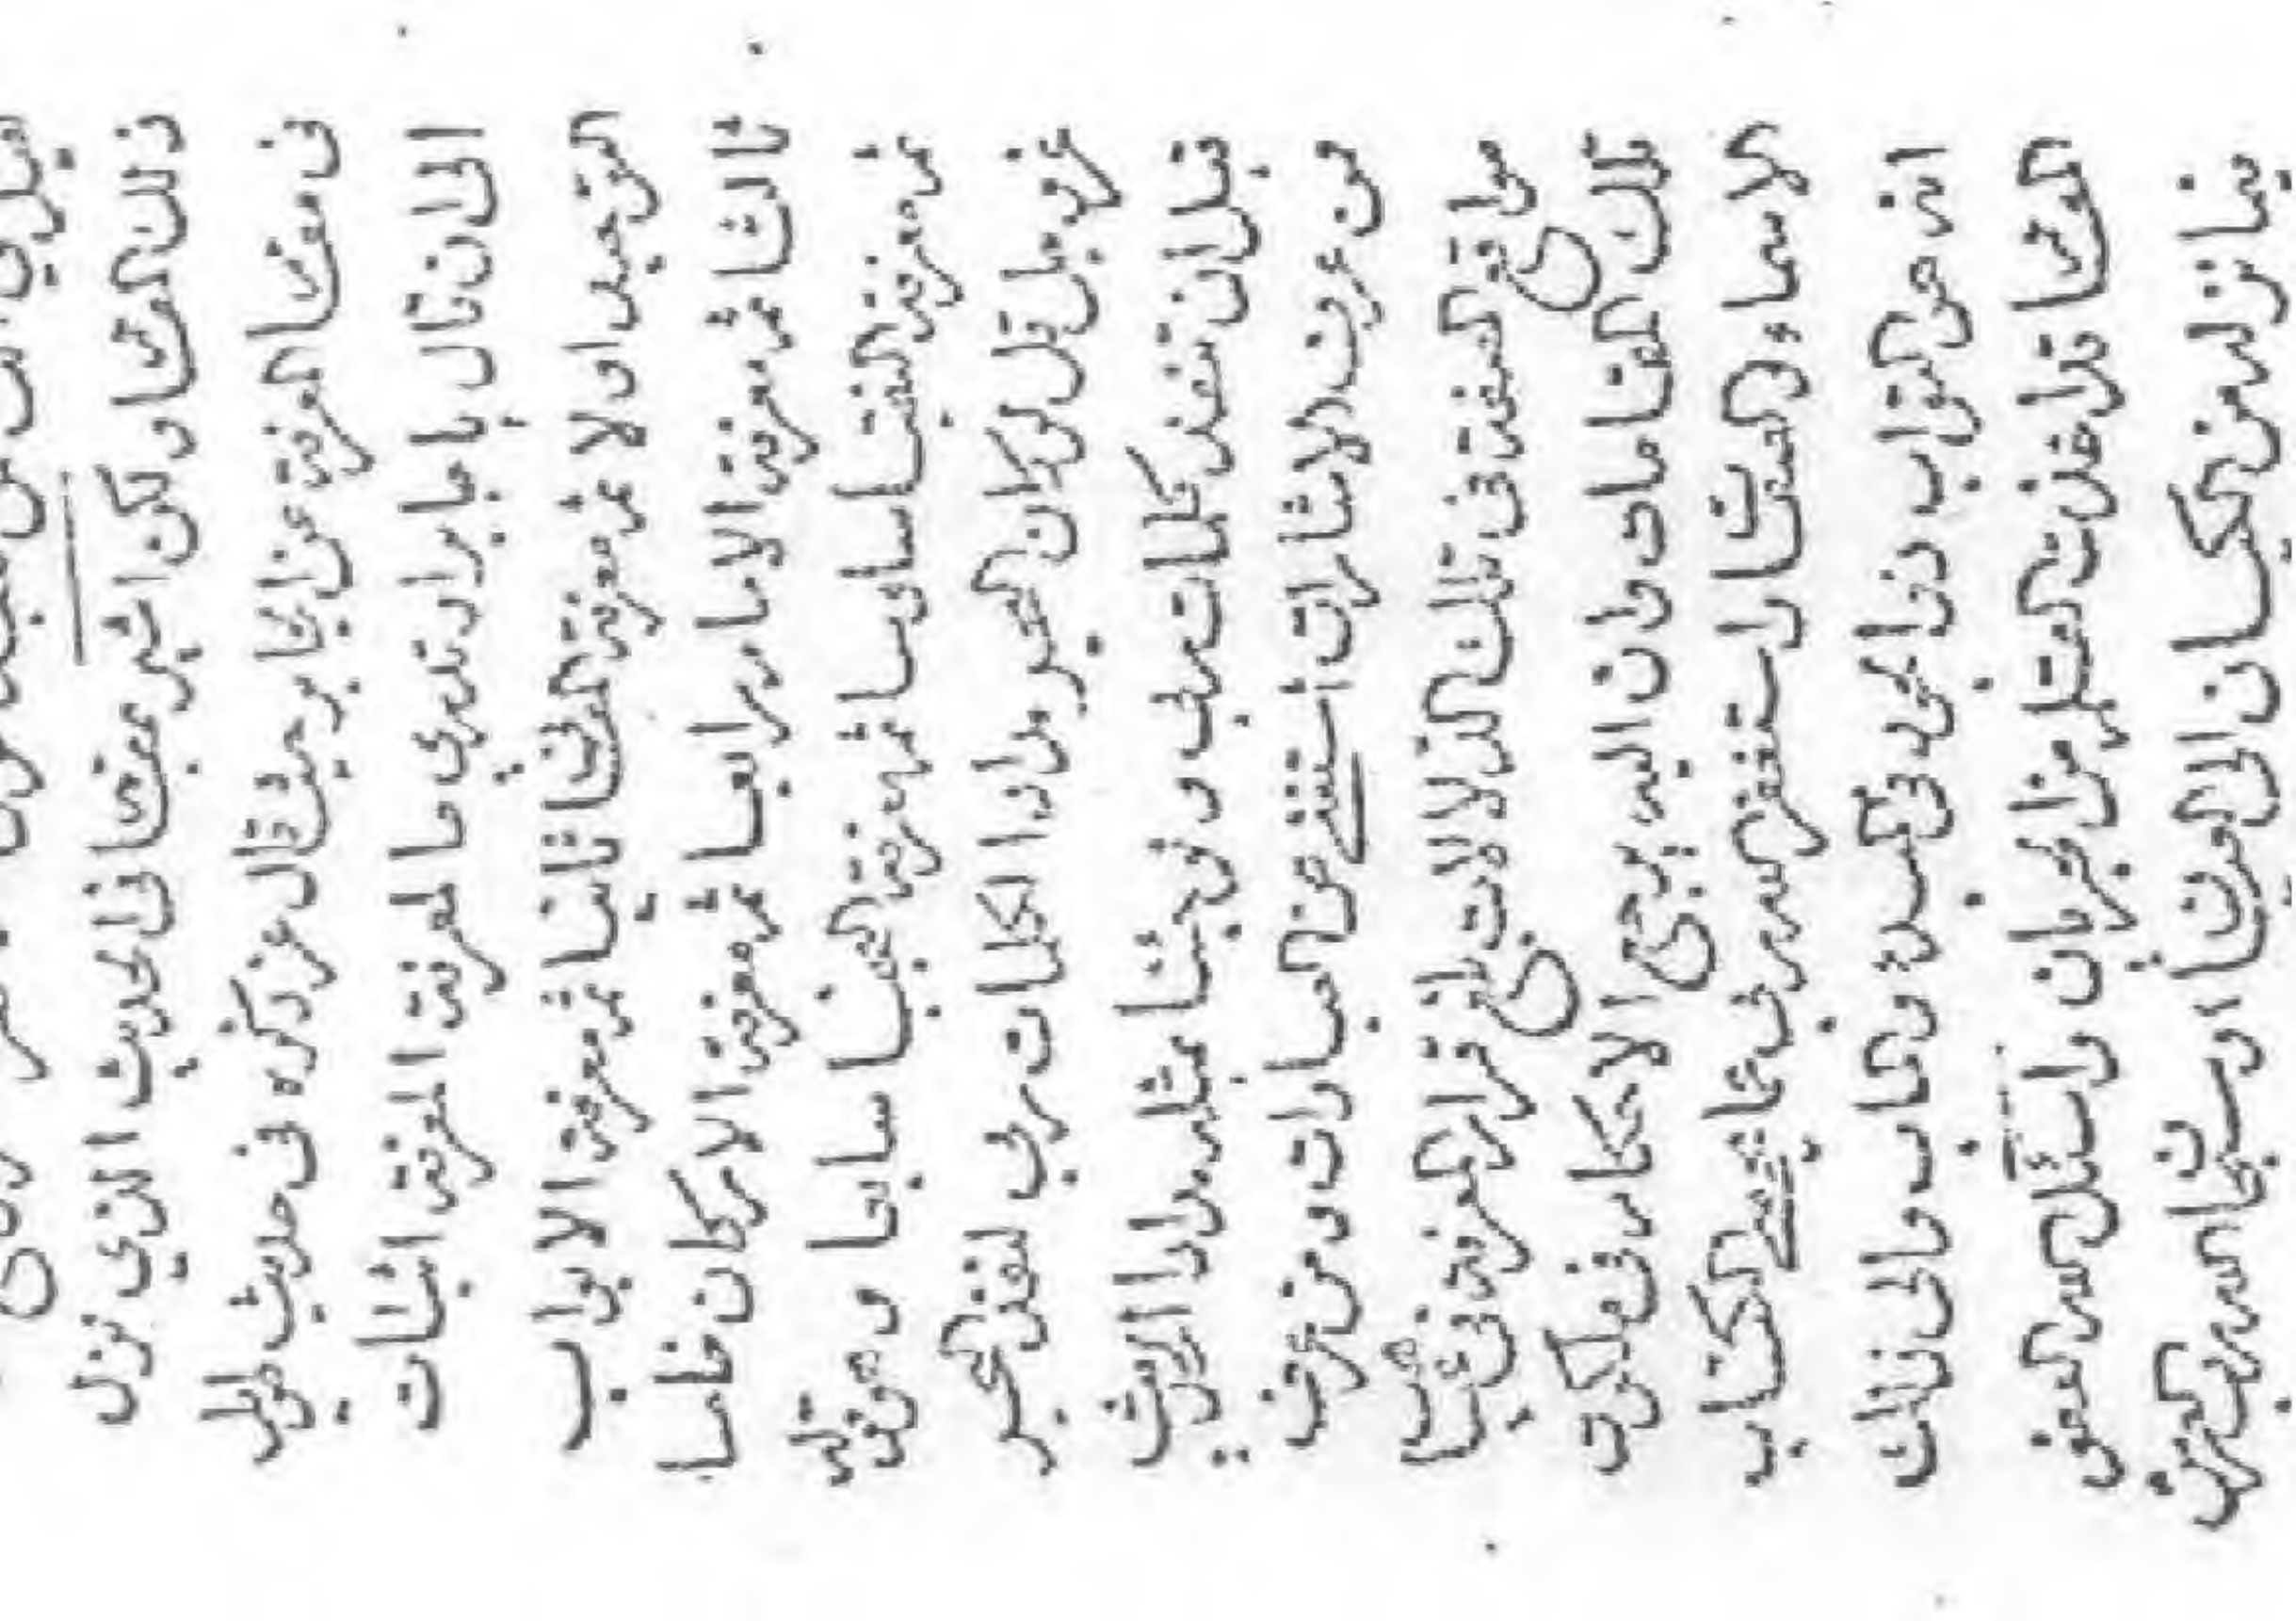 ذلك المقام ولكن اشير بمقام في الحديث الذي نزل
في مقام المعرفة عن جابر حيث قال عز ذكره في حديث طويل
الى ان قال يا جابر اوتدري ما المعرفة المعرفة اثبات
التوحيد اولا ثم معرفة المعاني ثانيا ثم معرفة الابواب
ثالثا ثم معرفة الامام رابعا ثم معرفة الاركان خامسا
ثم معرفة النقباء سادسا ثم معرفة النجباء سابعا وهو قوله
عز وجل قل لو كان البحر مدادا لكلمات ربي لنفد البحر
قبل ان تنفد كلمات ربي ولو جئنا بمثله مددا
من عرف الاشارات استغنى من العبارات ومن عرف
مواقع الصفة في تلك الدلالات بلغ قرار المعرفة في
تلك المقامات وان اليه يرجع الاحكام في ملكوت
الاسماء والصفات واستغفر الله ربي عما الكتاب
انه هو التواب في المبدء والماب والى ذلك
المقام قد اخذت القلم من الجريان واسئل الله العفو
فيما نزل من البيان الى وسبحان الله رب العرش